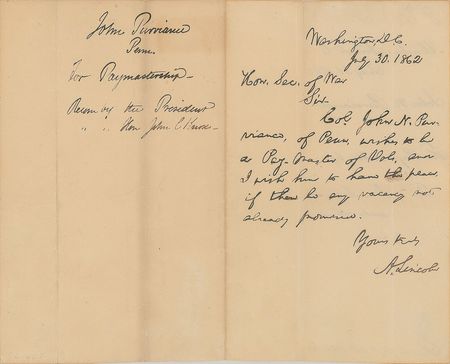 John Purviance
Penn.
For Paymastership—
Recom by the President
" " Hon John C Knox—
Washington, D.C.
July 30. 1862
Hon. Sec. of War
Sir.
Col. John N. Pur-
viance, of Penn, wishes to be
a Pay-Master of Vols, and
I wish him to have the place,
if there be any vacancy not
already promised.
Yours truly
A. Lincoln